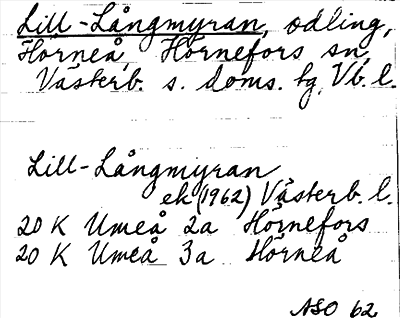 Lill-Långmyran, odling,
Hörneå, Hörnefors sn,
Västerb. s. doms. tg, Vb. l.
Lill-Långmyran
ek (1962) Västerb. l.
20 K Umeå 2a Hörnefors
20 K Umeå 3a Hörneå
ASO 62